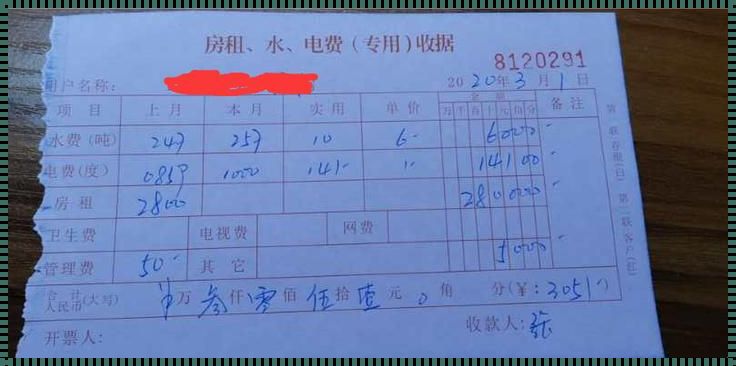 房租、水、电费（专用）收据
8120291
用户名称： 2020年3月1日
项 目 上 月 本 月 实 用 单 价 金 额 万 千 百 十 元 角 分 备 注
水费(吨) 247 257 10 6- 6000-
电费(度) 0859 1000 141- 1- 14100-
房 租 2800 280000-
卫生费 电视费 网费
管理费 50- 其 它 5000-
合 计 人民币(大写) 万叁仟零佰伍拾壹元0角 分(￥：3051-)
开票人： 收款人：张
第一联存根(白) 第二联客户(红)